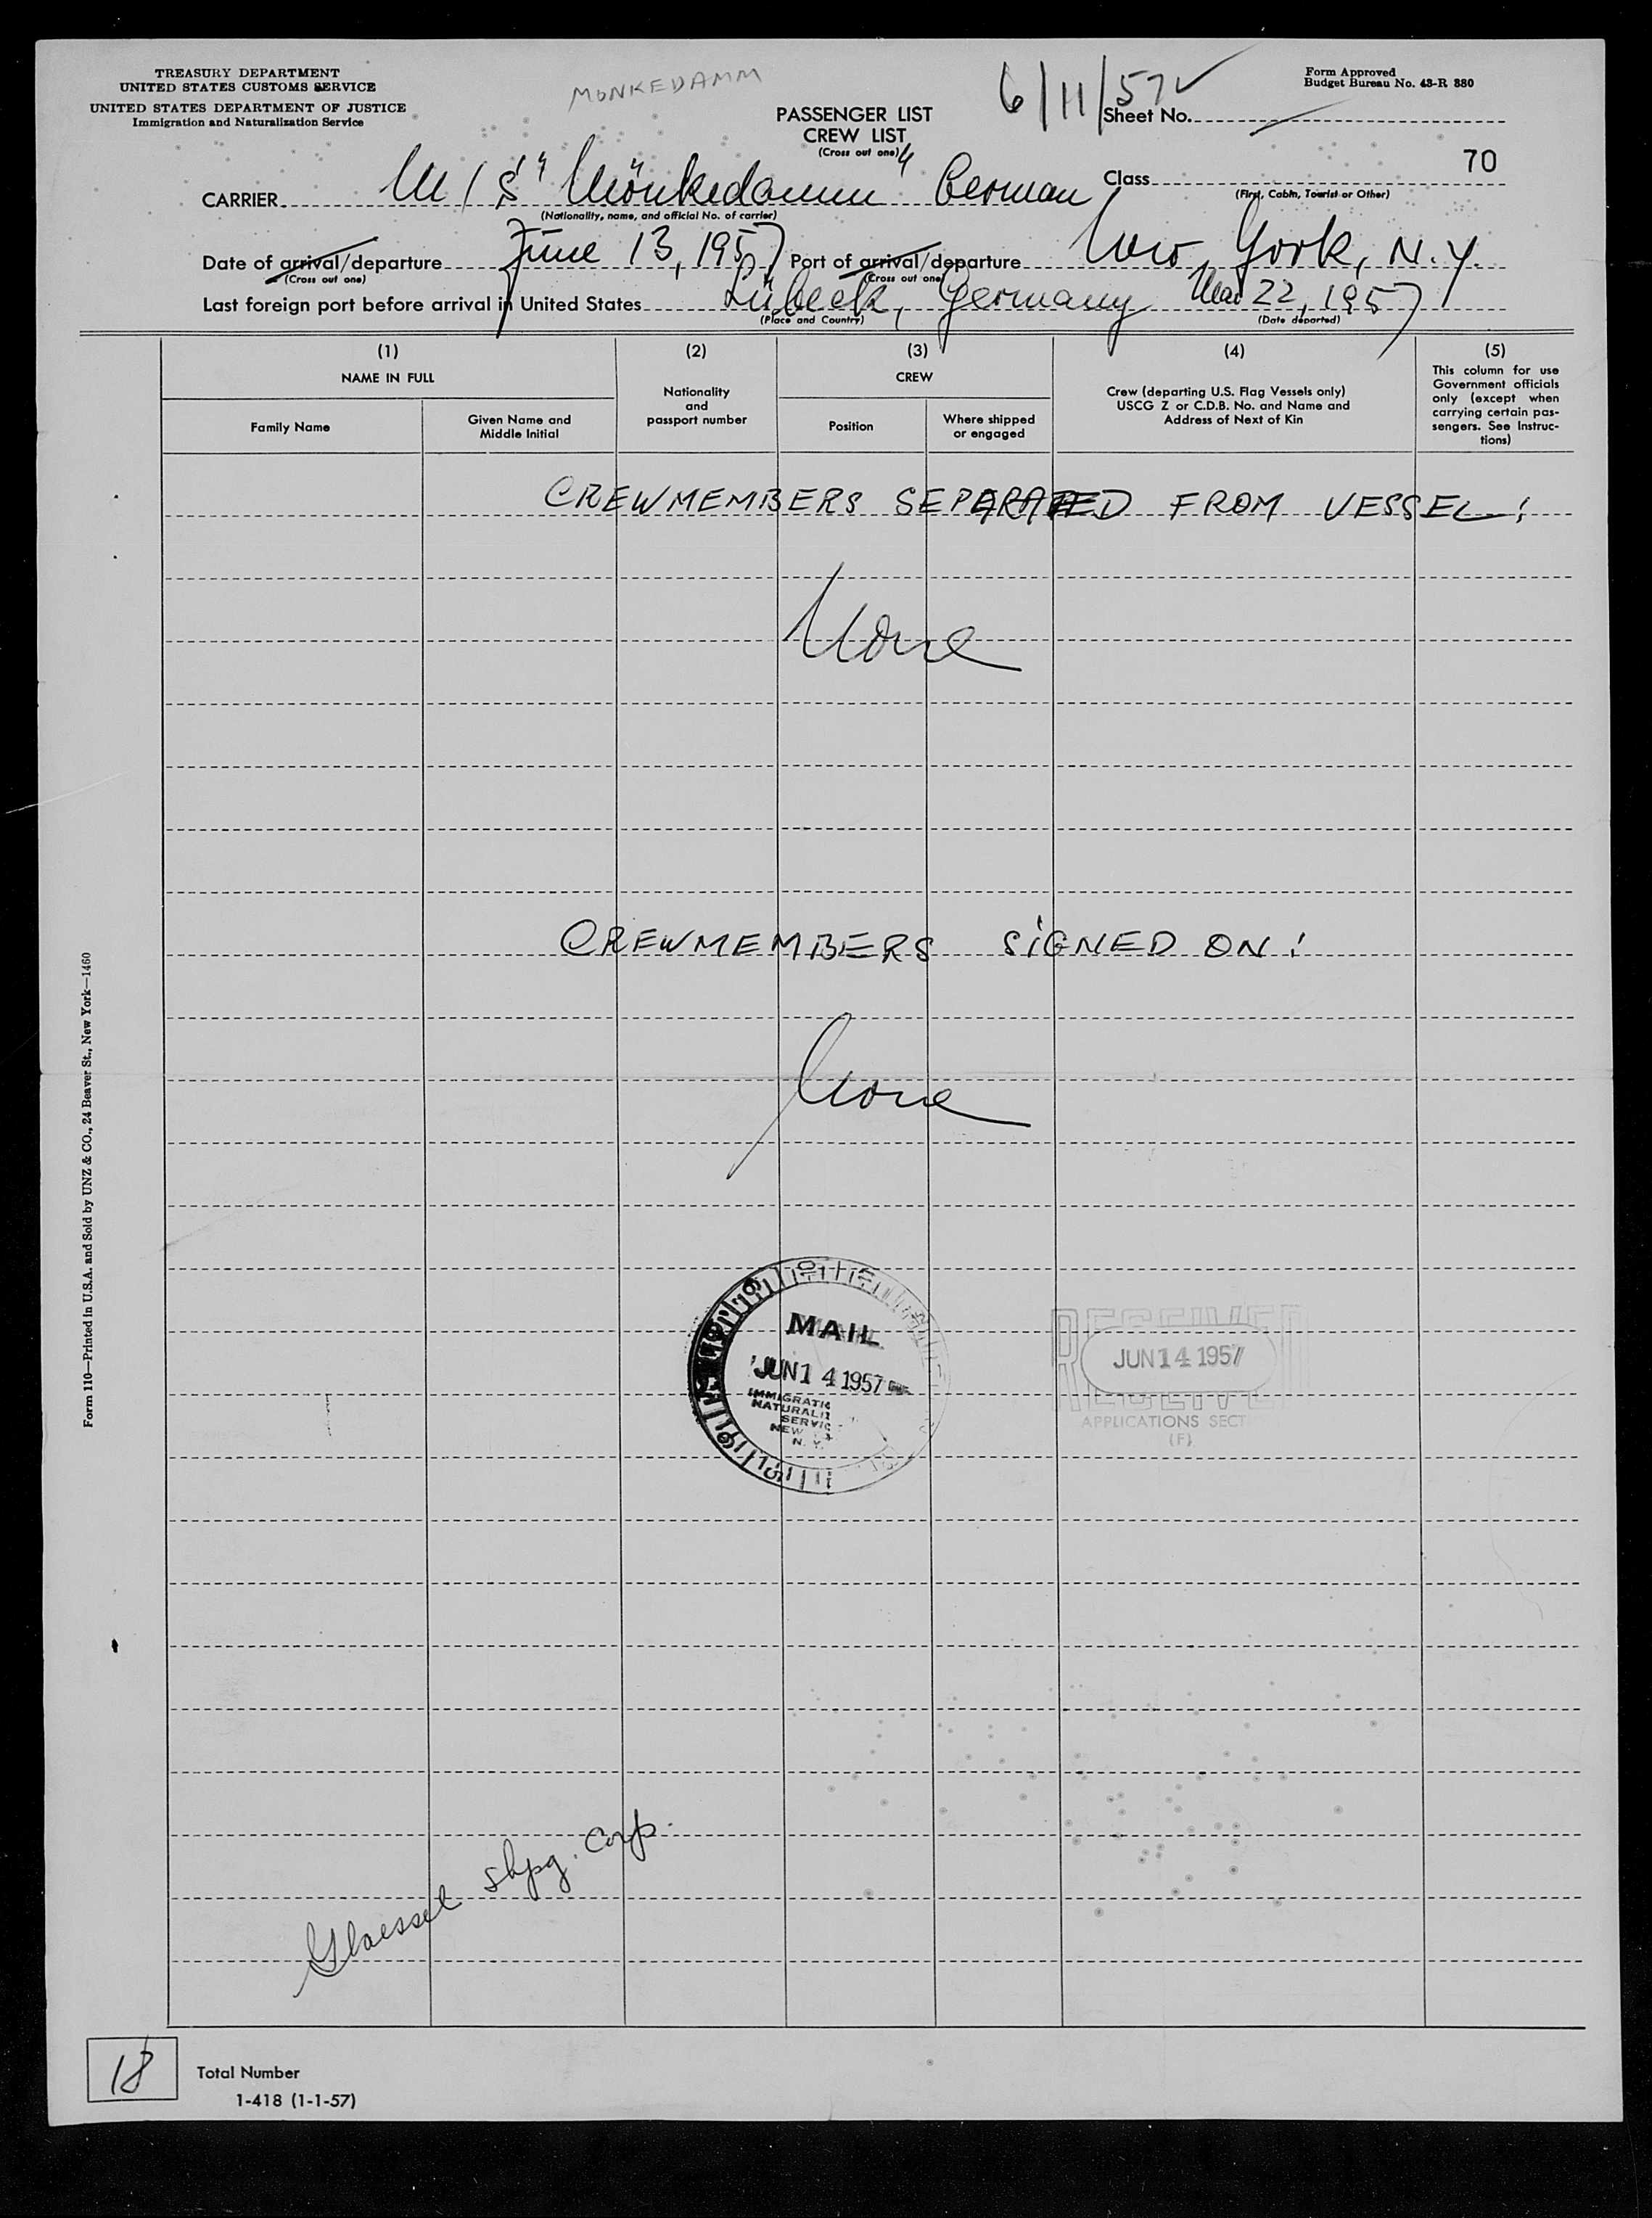 TREASURY DEPARTMENT
UNITED STATES CUSTOMS SERVICE
UNITED STATES DEPARTMENT OF JUSTICE
Immigration and Naturalization Service
MONKEDAMM
PASSENGER LIST
CREW LIST
(Cross out one)
6/11/57
Form Approved
Budget Bureau No. 43-R 380
Sheet No.
70
CARRIER M/S "Mönkedamm" German
(Nationality, name, and official No. of carrier)
Class
(First, Cabin, Tourist or Other)
Date of arrival/departure June 13, 1957 Port of arrival/departure New York, N.Y.
(Cross out one) (Cross out one)
Last foreign port before arrival in United States Lübeck, Germany Mai 22, 1957
(Place and Country) (Date departed)
(1)
NAME IN FULL
Family Name
Given Name and
Middle Initial
(2)
Nationality
and
passport number
(3)
CREW
Position
Where shipped
or engaged
(4)
Crew (departing U.S. Flag Vessels only)
USCG Z or C.D.B. No. and Name and
Address of Next of Kin
(5)
This column for use
Government officials
only (except when
carrying certain pas-
sengers. See Instruc-
tions)
CREWMEMBERS SEPARATED FROM VESSEL:
None
CREWMEMBERS SIGNED ON:
None
MAIL
JUN 14 1957
IMMIGRATI
NATURALIZ
SERVIC
NEW
N. Y.
RECEIVED
JUN 14 1957
RECEIVED
APPLICATIONS SECT
(F)
Glaessel Shpg. Corp.
Form 110—Printed in U.S.A. and Sold by UNZ & CO., 24 Beaver St., New York—1460
18
Total Number
1-418 (1-1-57)